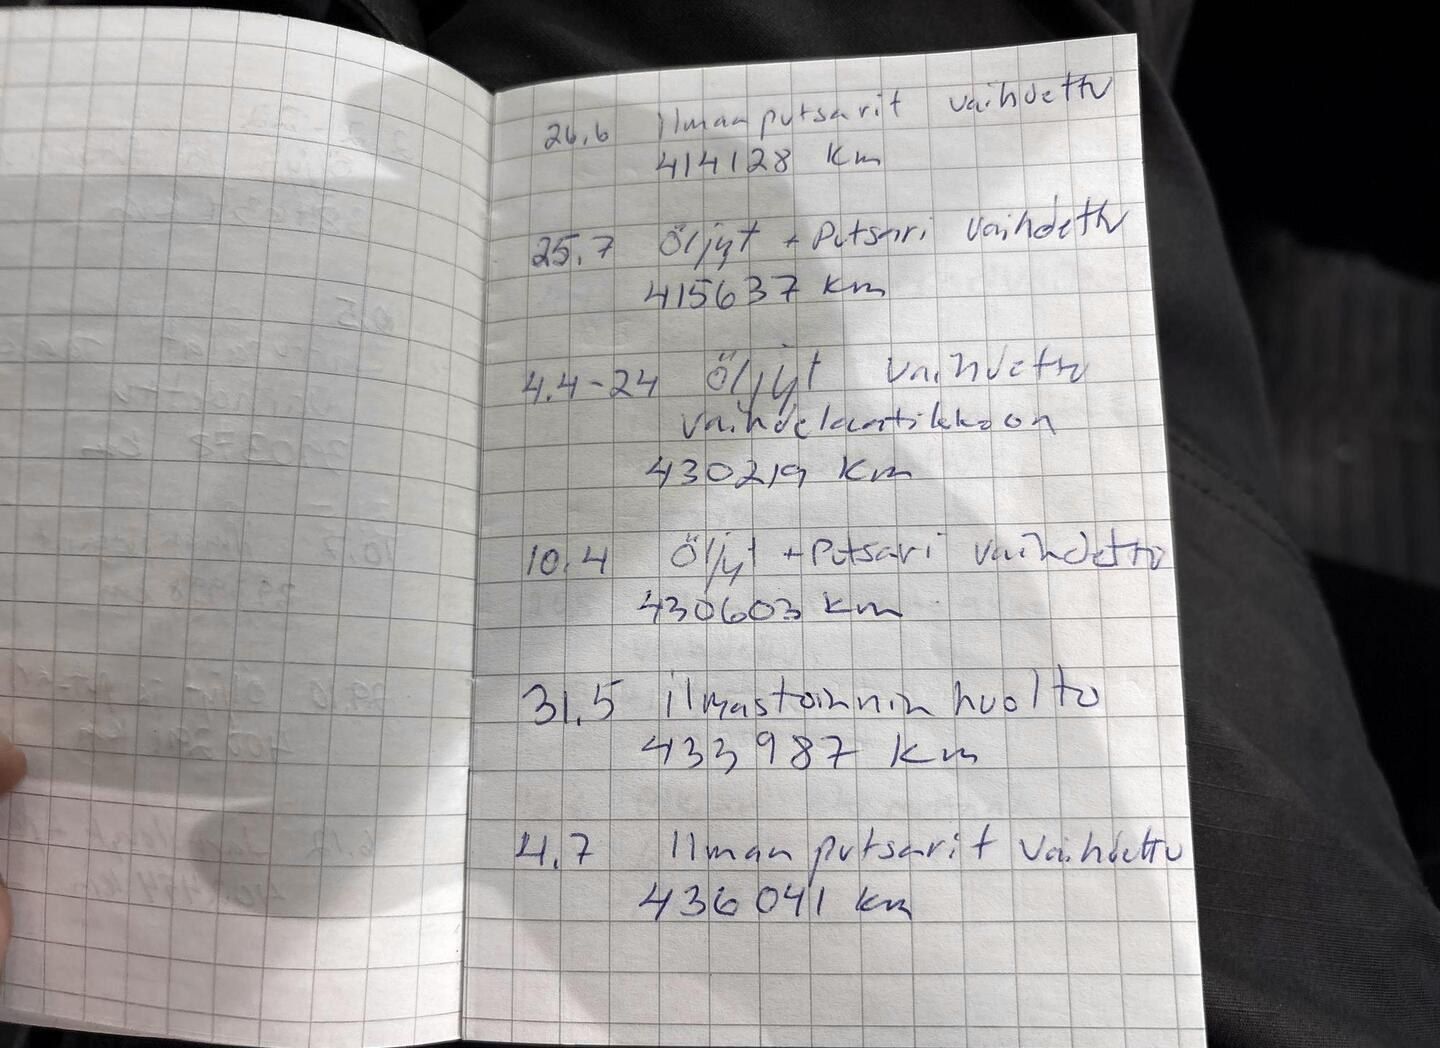 26.6 ilmaanputsarit vaihdettu
414128 km
25.7 Öljyt + Putsari vaihdettu
415637 km
4.4-24 Öljyt vaihdettu
vaihdelaatikkoon
430219 km
10.4 Öljyt + Putsari vaihdettu
430603 km
31.5 ilmastoinnin huolto
433987 km
4.7 Ilmaan putsarit vaihdettu
436041 km